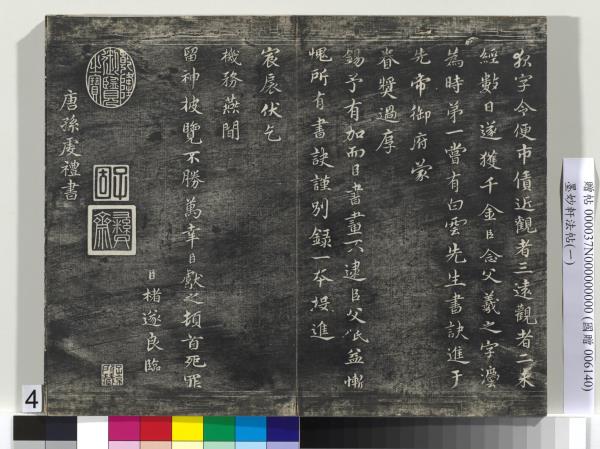 狄字令便市債近觀者三遠觀者二未
經數日遂獲千金臣念父羲之字灋
為時第一嘗有白雲先生書訣進于
先帝御府蒙
眷獎過厚
錫予有加而臣書畫不逮臣父祇益慚
愧所有書訣謹別錄一本投進
宸扆伏乞
機務燕閒
留神披覽不勝萬幸臣獻之頓首死罪
臣褚遂良臨
唐孫虔禮書
乾隆御覽之寶
4
贈帖 000037N000000000 (國贈 006140)
墨妙軒法帖(一)